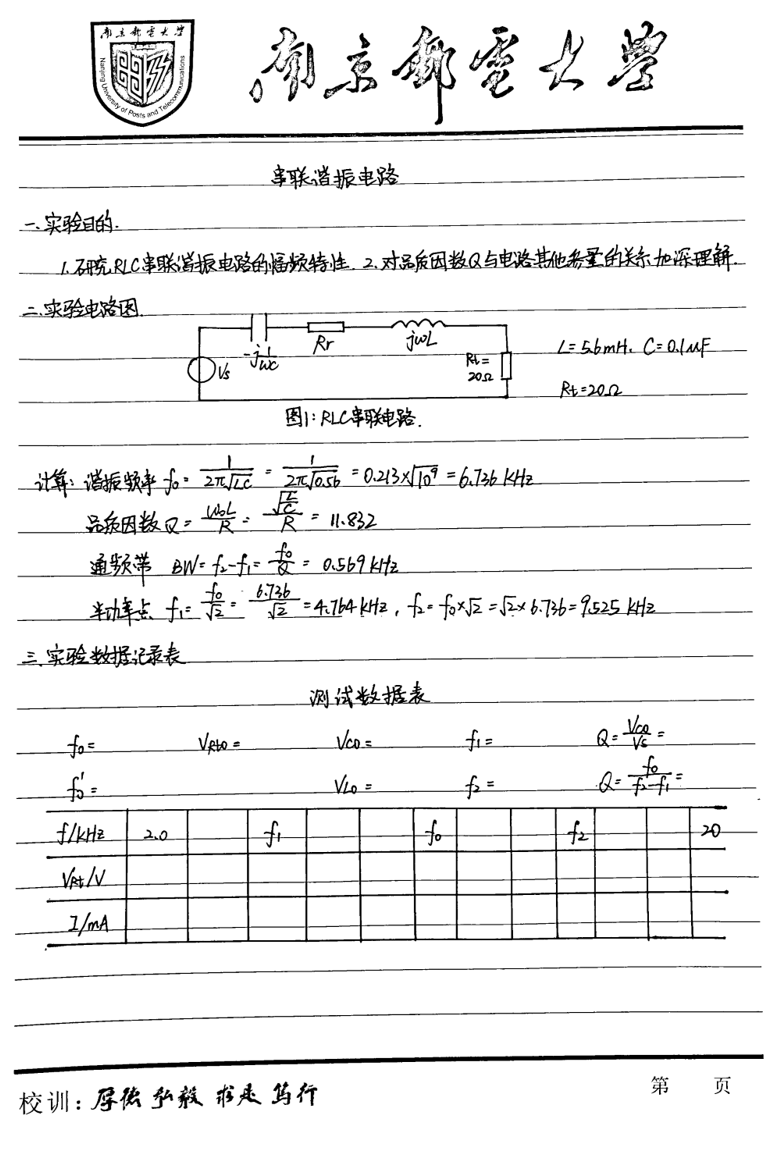 南京邮电大学
Nanjing University of Posts and Telecommunications
南京邮电大学
串联谐振电路
一、实验目的.
1.研究RLC串联谐振电路的幅频特性. 2.对品质因数Q与电路其他参量的关系加深理解.
二、实验电路图.
Vs -j1/ωC Rr jωL Rt=20Ω
L=5.6mH、C=0.1μF
Rt=20Ω
图1: RLC串联电路.
计算: 谐振频率 f₀= 1/(2π√LC) = 1/(2π√0.56) =0.213×√10⁹ =6.736 kHz
品质因数Q= ω₀L/R = √(L/C)/R = 11.832
通频带 BW= f₂-f₁= f₀/Q = 0.569 kHz
半功率点 f₁= f₀/√2 = 6.736/√2 =4.764 kHz, f₂= f₀×√2 =√2×6.736=9.525 kHz
三、实验数据记录表
测试数据表
f₀= VRt0= VC0= f₁= Q= VC0/VS =
f₀'= VL0= f₂= Q= f₀/(f₂-f₁) =
f/kHz 2.0 f₁ f₀ f₂ 20
VRt/V
I/mA
校训: 厚德 弘毅 求是 笃行
第 页